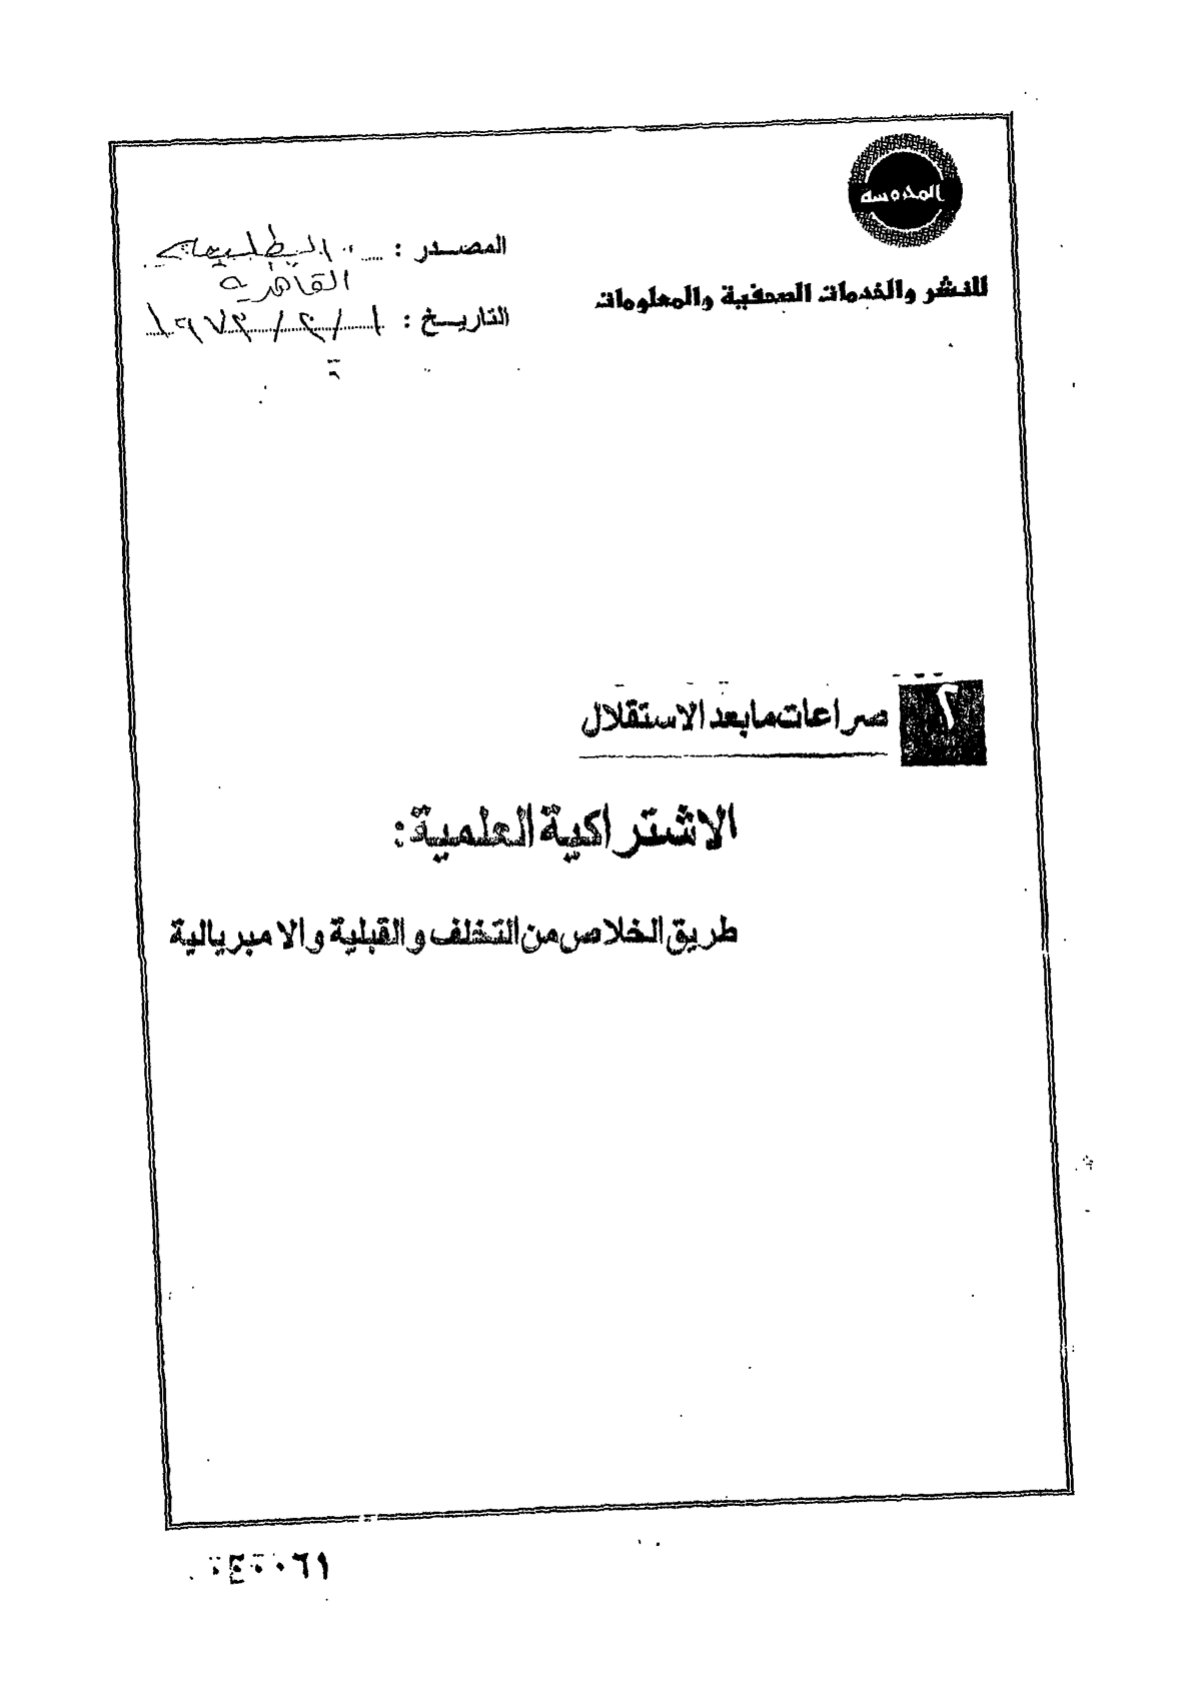 المحروسة
للنشر والخدمات الصحفية والمعلومات
المصدر : الطليعة
القاهرية
التاريخ : ١ / ٢ / ١٩٧٣
٢
صراعات مابعد الاستقلال
الاشتراكية العلمية:
طريق الخلاص من التخلف والقبلية والامبريالية